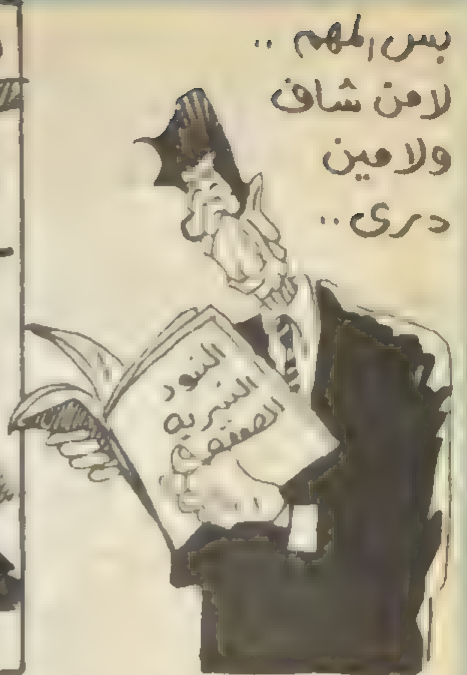 بس المهم ..
لا من شاف
ولا مين
درى ..
البنود
السرية